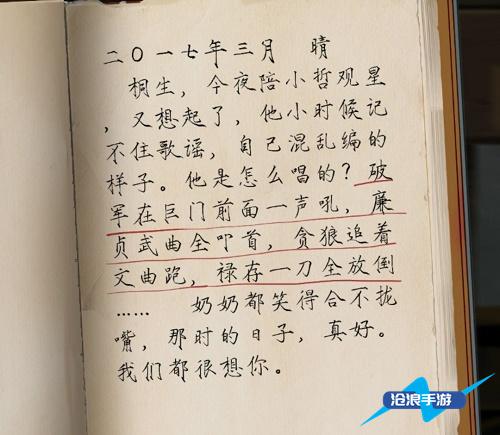 二〇一七年三月 晴
桐生，今夜陪小哲观星
，又想起了，他小时候记
不住歌谣，自己混乱编的
样子。他是怎么唱的？破
军在巨门前面一声吼，廉
贞武曲全叩首，贪狼追着
文曲跑，禄存一刀全放倒
…… 奶奶都笑得合不拢
嘴，那时的日子，真好。
我们都很想你。
沧浪手游